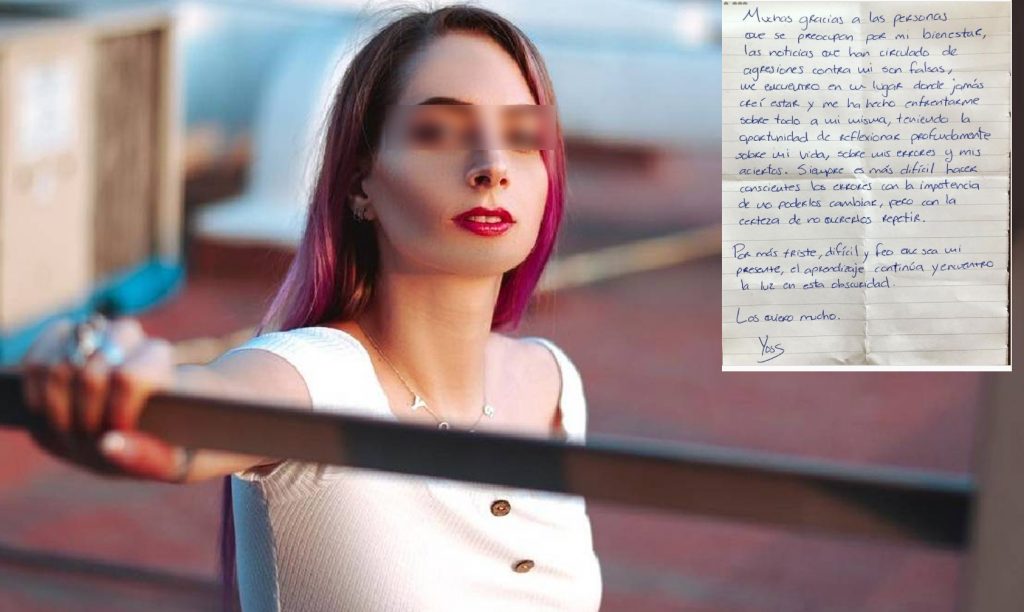 Muchas gracias a las personas
que se preocupan por mi bienestar,
las noticias que han circulado de
agresiones contra mi son falsas,
me encuentro en un lugar donde jamás
creí estar y me ha hecho enfrentarme
sobre todo a mi misma, teniendo la
oportunidad de reflexionar profundamente
sobre mi vida, sobre mis errores y mis
aciertos. Siempre es más difícil hacer
conscientes los errores con la impotencia
de no poderlos cambiar, pero con la
certeza de no quererlos repetir.
Por más triste, difícil y feo que sea mi
presente, el aprendizaje continúa y encuentro
la luz en esta obscuridad.
Los quiero mucho.
Yoss